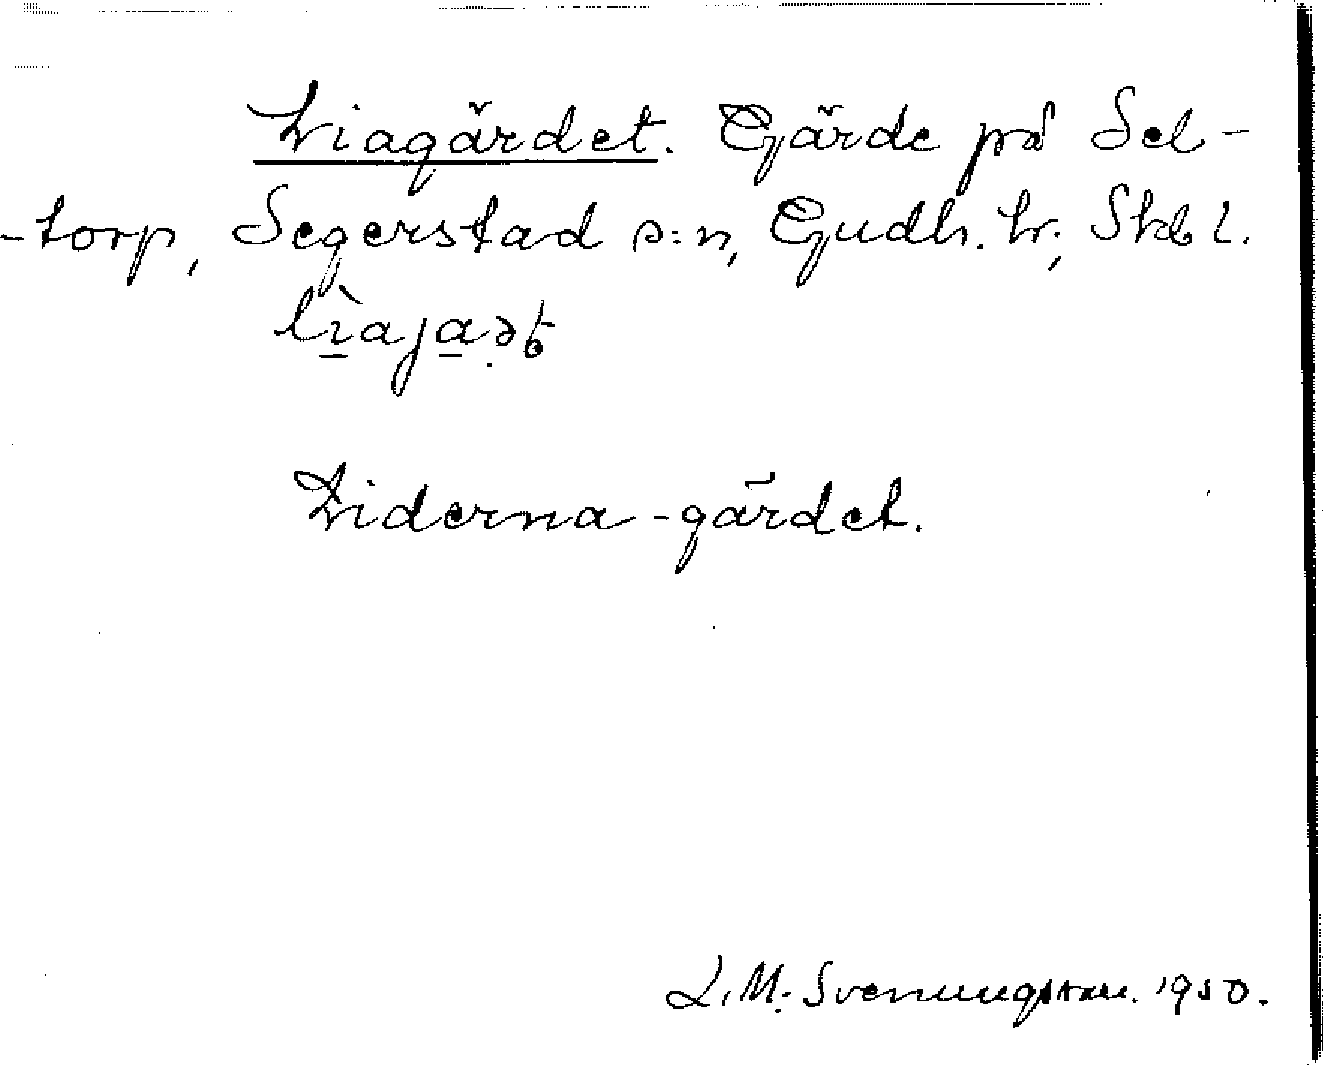 Liagärdet. Gärde på Sel-
-torp, Segerstad s:n, Gudh. hr; Skb l.
lìajaṣət
Liderna-gärdet.
L. M. Svenungsson. 1950.